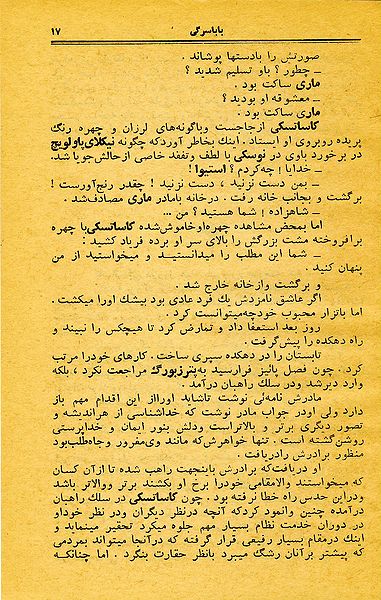 باباسرگی
۱۷
صورتش را بادستها پوشاند .
ــ چطور ؟ باو تسلیم شدید ؟
ماری ساکت بود .
ــ معشوقه او بودید ؟
ماری ساکت بود .
کاساتسکی ازجاجست وباگونه‌های لرزان و چهره رنگ
پریده روبروی او ایستاد . اینك بخاطر آوردکه چگونه نیکلای‌پاولویچ
در برخورد باوی در نوسکی با لطف وتفقد خاصی ازحالش‌جویا شد.
ــ خدایا ! چه‌کردم ؟ استیوا !
ــ بمن دست نزنید ، دست نزنید ! چقدر رنج‌آورست !
برگشت و بجانب خانه رفت . درخانه بامادر ماری مصادف‌شد .
ــ شاهزاده ! شما هستید ؟ من ...
اما بمحض مشاهده چهره‌اوخاموش‌شده کاساتسکی‌با چهره
برافروخته مشت بزرگش را بالای سر او برده فریاد کشید :
ــ شما این مطلب را میدانستید و میخواستید از من
پنهان کنید .
و برگشت وازخانه خارج شد .
اگر عاشق نامزدش یك فرد عادی بود بیشك اورا میکشت .
اما باتزار محبوب خودچه‌میتوانست کرد .
روز بعد استعفا داد و تمارض کرد تا هیچکس را نبیند و
راه دهکده را پیش‌گرفت .
تابستان را در دهکده سپری ساخت . کارهای خودرا مرتب
کرد . چون فصل پائیز فرارسید به‌پترزبورگ مراجعت نکرد ، بلکه
وارد دیرشد ودر سلك راهبان درآمد .
مادرش نامه‌ئی نوشت تاشاید اورااز این اقدام مهم باز
دارد ولی اودر جواب مادر نوشت که خداشناسی از هراندیشه و
تصور دیگری برتر و بالاتراست ودلش بنور ایمان و خداپرستی
روشن‌گشته است . تنها خواهرش‌که مانند وی‌مغرور وجاه‌طلب‌بود
منظور برادرش رادریافت .
او دریافت‌که برادرش باینجهت راهب شده تااز‌آن کسان
که میخواستند والامقامی خودرا برخ او بکشند برتر ووالاتر باشد
ودراین حدس راه خطا نرفته بود . چون کاساتسکی در سلك راهبان
درآمده چنین وانمود کردکه آنچه درنظر دیگران ودر نظر خوداو
در دوران خدمت نظام بسیار مهم جلوه میکرد تحقیر مینماید و
اینك درمقام بسیار رفیعی قرار گرفته که درآنجا میتواند بمردمی
که پیشتر برآنان رشگ میبرد بانظر حقارت بنگرد . اما چنانکه